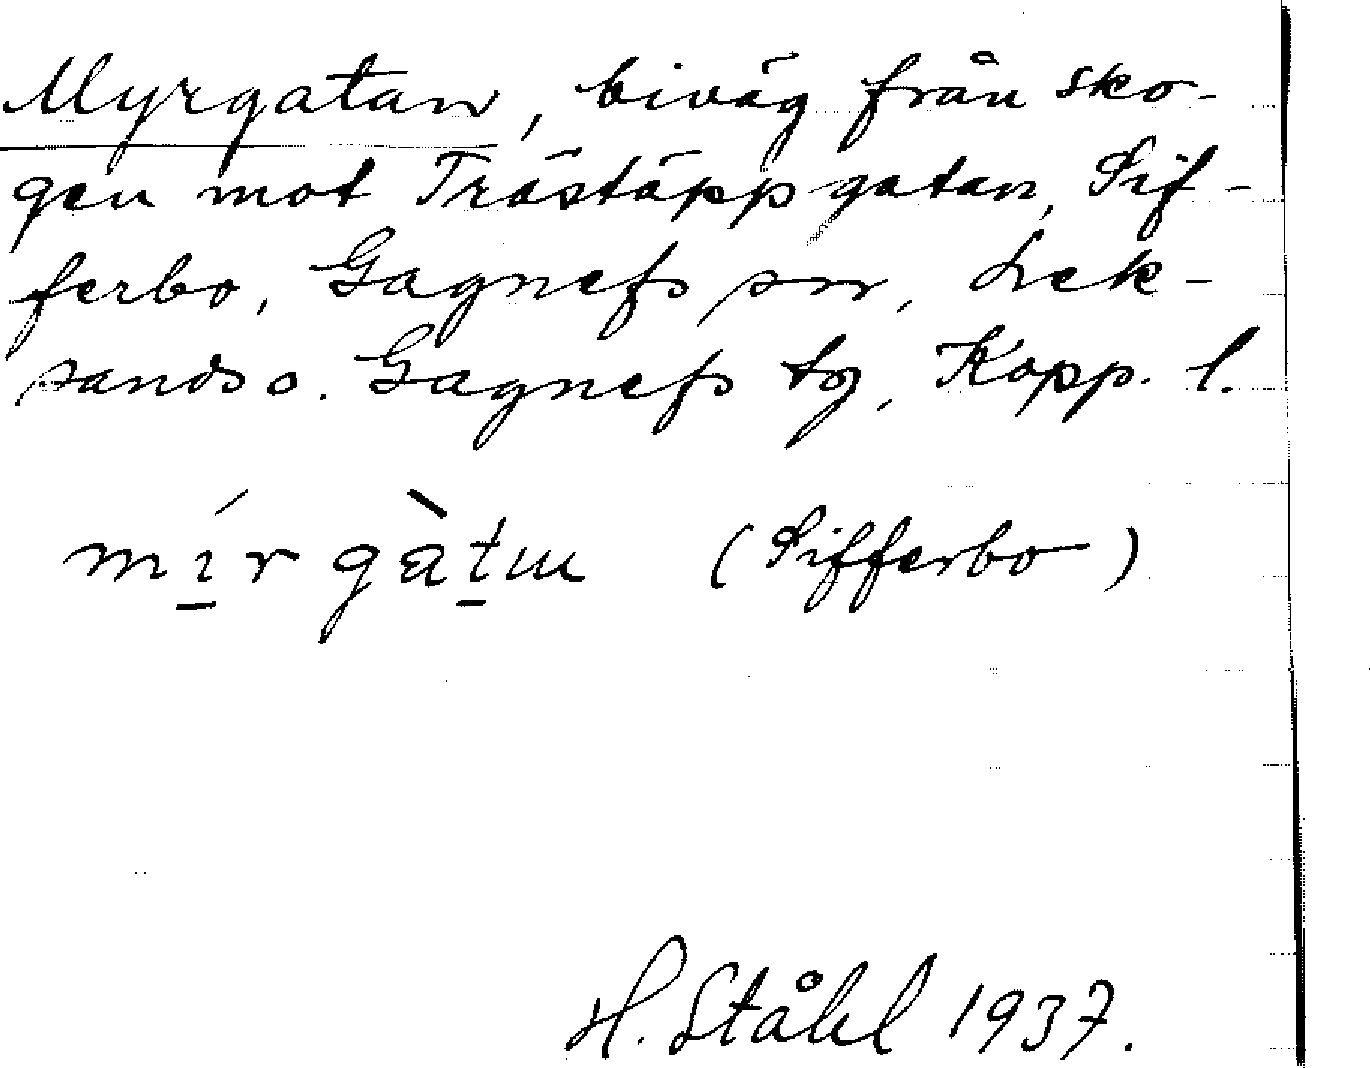 Myrgatan, biväg från sko-
gen mot Trästäppgatan, Sif-
ferbo, Gagnefs sn, Lek-
sands o. Gagnefs tg, Kopp. l.
mí̱r gàṯɯ (Sifferbo)
H. Ståhl 1937.